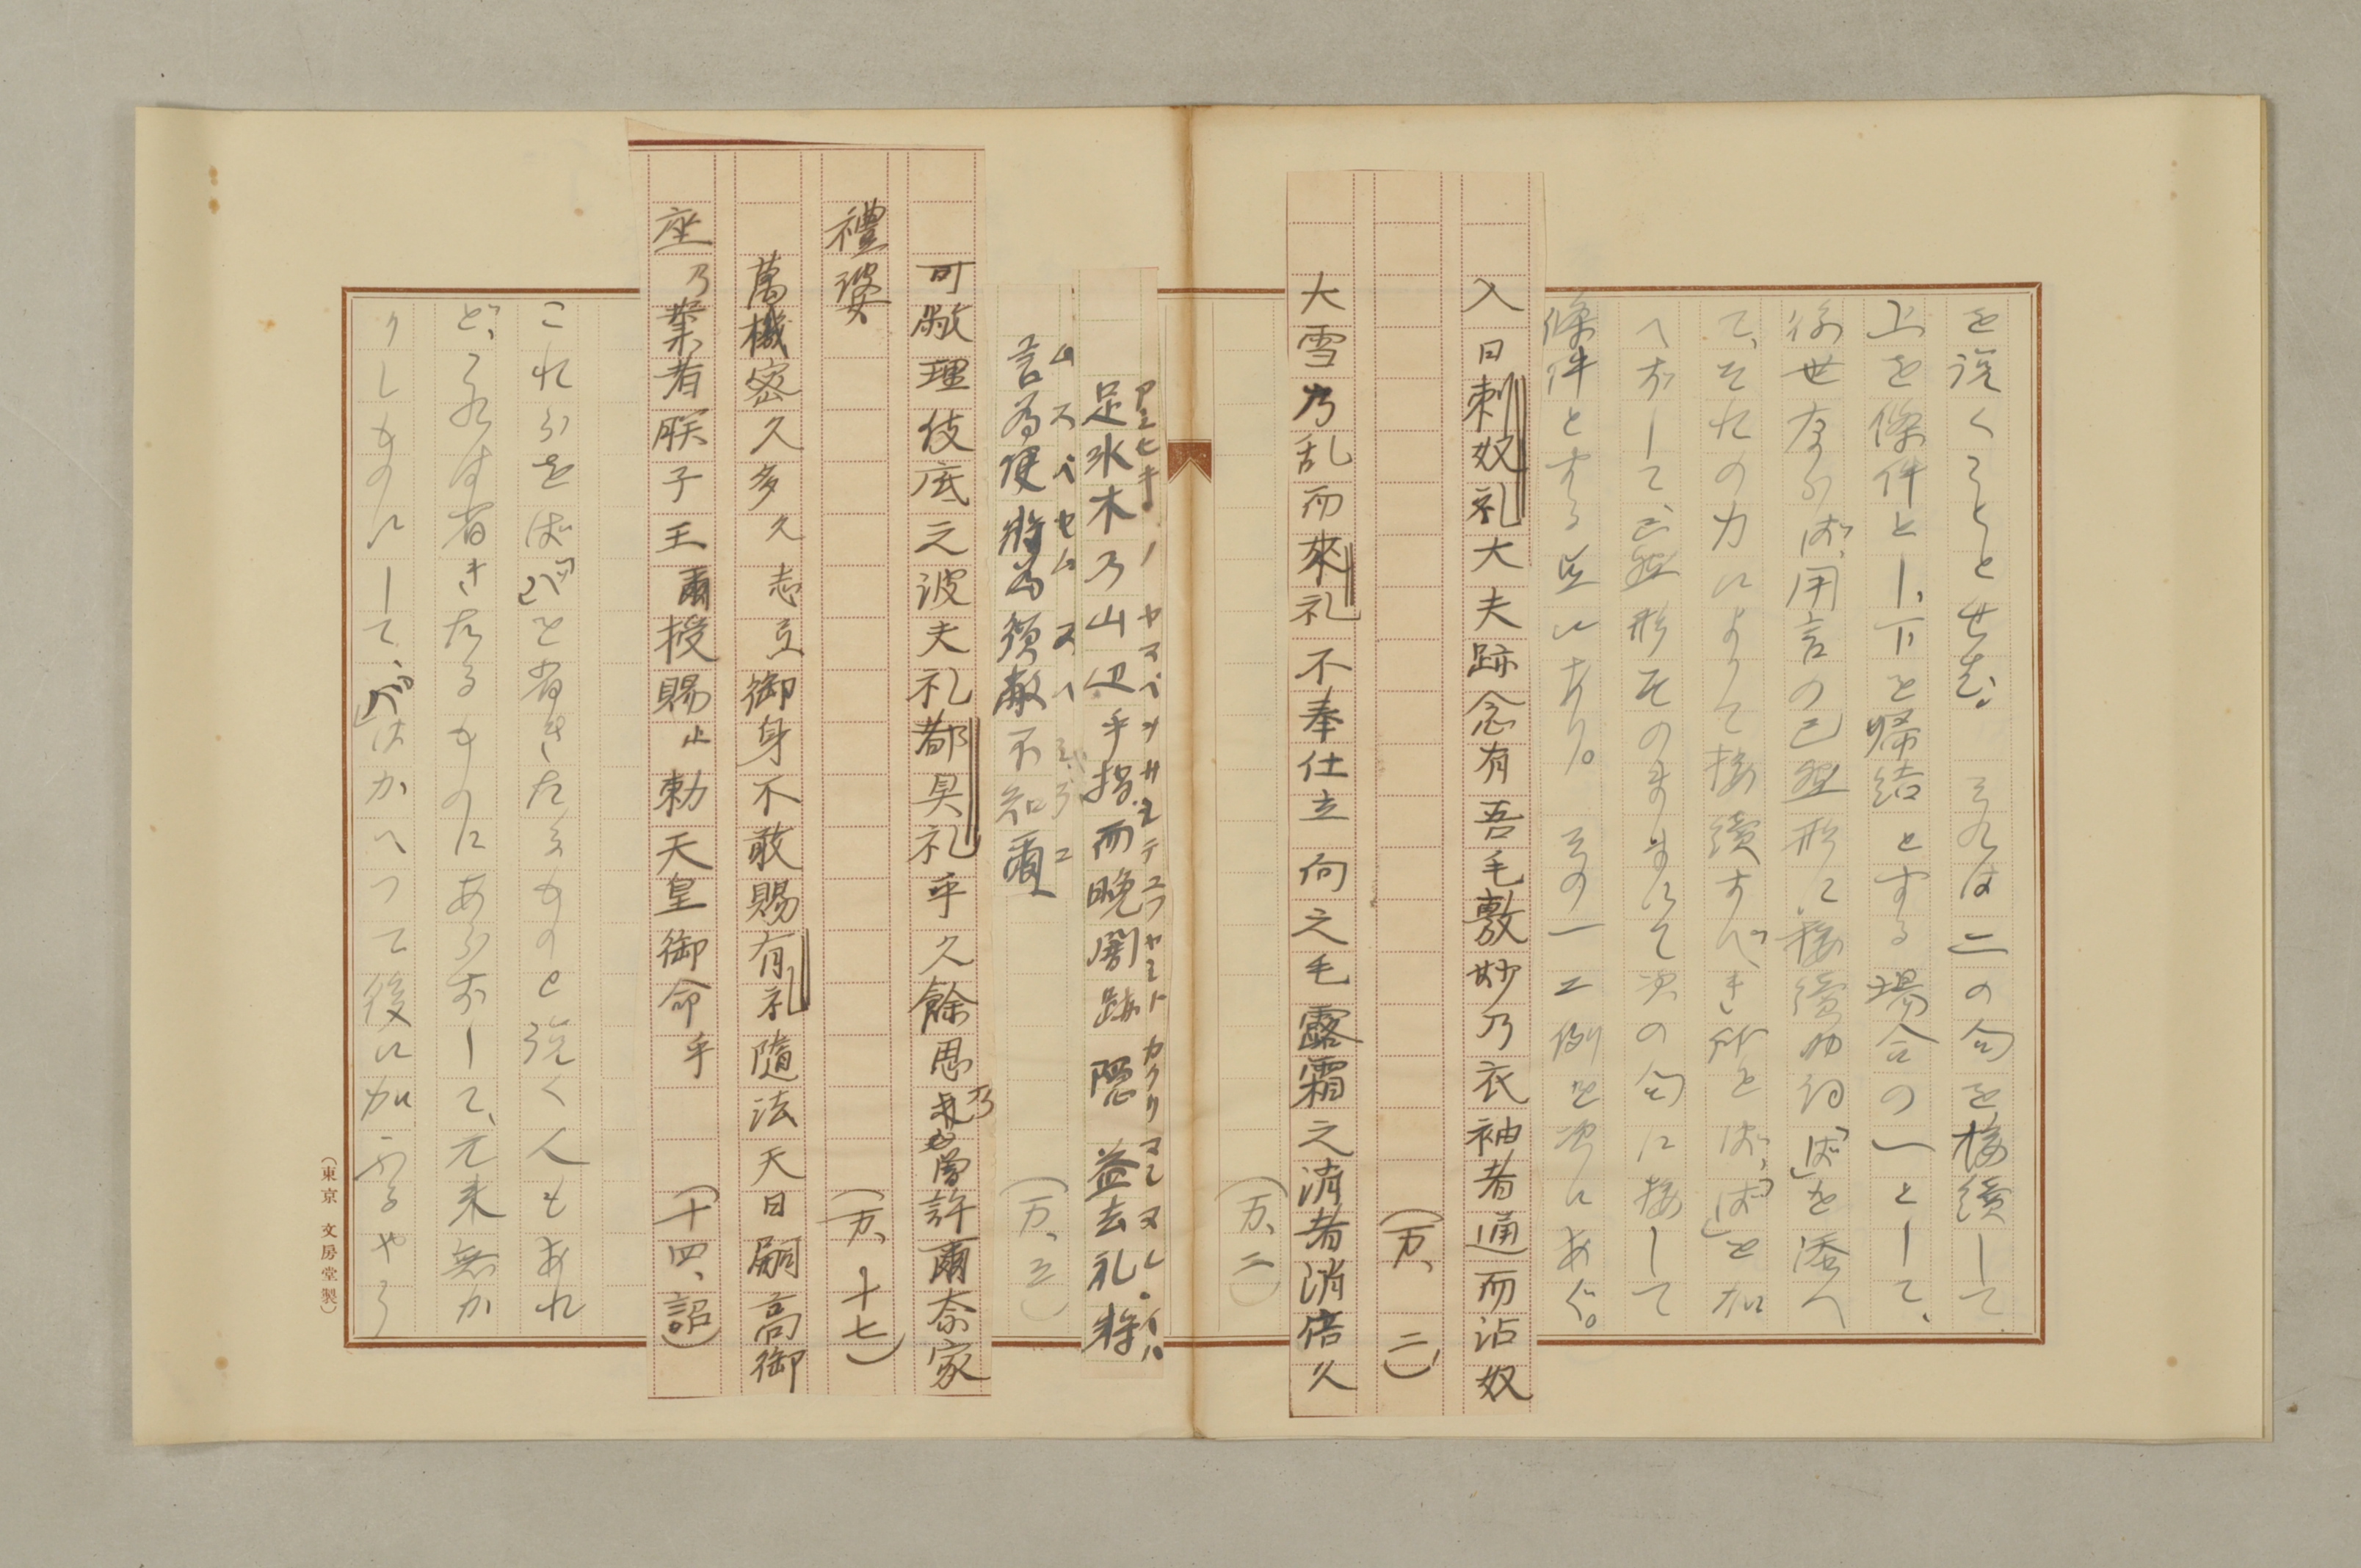 を説くことゝせむ。それは二の句を接続して、
上を條件とし、下を帰結とする場合の一として、
後世ならば、用言の已然形に接続助詞「ば」を添へ
て、それの力によりて接續すべき所をば、「ば」を加
へずして、已然形そのまゝにて次の句に接して
條件とするものなり。その一二例を次にあぐ。
入日刺奴礼大夫跡念有吾毛敷妙乃衣袖者通而沾奴
（万、二）
大雪乃乱而來礼不奉仕立向之毛露霜之消者消倍久
（万、二）
足氷木乃山辺乎指而晩闇跡隠益去礼将
アシヒキノヤマベヲサシテユフヤミトカクリマシヌレ。イハ
言為便將為須敝不知爾
ムスベセムスヘ
可敝理伎底之波夫礼都具礼乎久餘思乃曽許爾奈家
禮婆
（万、十七）
萬機密久多久志弖御身不敢賜有礼隨法天日嗣高御
座乃業者朕子王爾授賜止勅天皇御命乎
（十四、詔）
これらをば「バ」を省きたるものと説く人もあれ
ど、これは省きたるものにあらずして、元来無か
りしものにして、「バ」はかへつて後に加ふるやう
（東京 文房堂製）